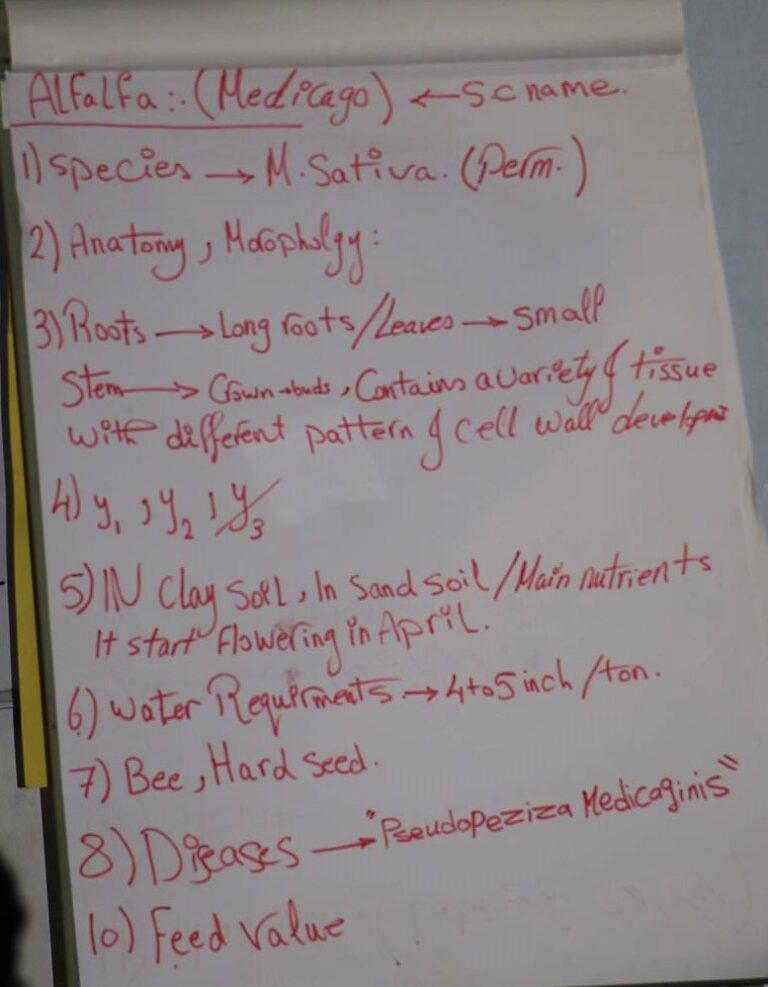 Alfalfa:. (Medicago) ← Sc name.
1) Species → M. Sativa. (Perm.)
2) Anatomy, Moropholgy:
3) Roots → Long roots / Leaves → small
Stem → Crown → buds, Contains a variety of tissue
with different pattern of cell wall
4) y₁, y₂, y₃
5) IN Clay soil, In Sand soil / Main nutrients
It start flowering in April.
6) Water Requirments → 4 to 5 inch / ton.
7) Bee, Hard seed.
8) Diseases → "Pseudopeziza Medicaginis"
10) Feed value